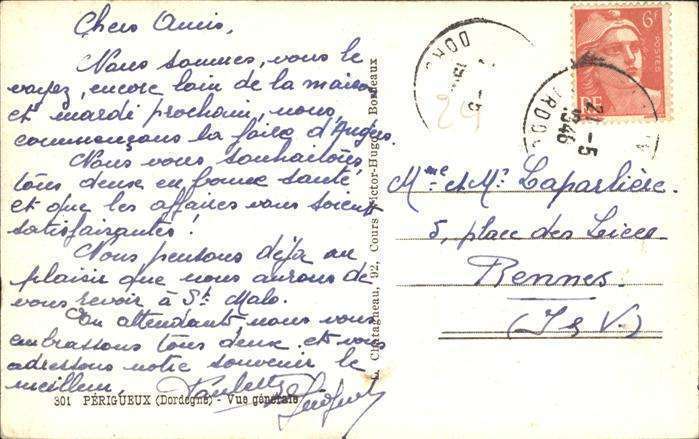 Chers Amis,
Nous sommes, vous le
voyez, encore loin de la maison
et mardi prochain, nous
commençons la foire d'Angers.
Nous vous souhaitons,
tous deux en bonne santé
et que les affaires vous soient
satisfaisantes!
Nous pensons déjà au
plaisir que nous aurons de
vous revoir à St Malo.
En attendant, nous vous
embrassons tous deux et vous
adressons notre souvenir le
meilleur,
Paulette
301 PÉRIGUEUX (Dordogne) - Vue générale
L. Chatagneau, 92, Cours Victor-Hugo, Bordeaux
DORD
-5
29
6F
POSTES
RF
21 -5
1946
ORDOG
Mme et Mr Laparlière.
5, place des Lices
Rennes.
(I & V.)